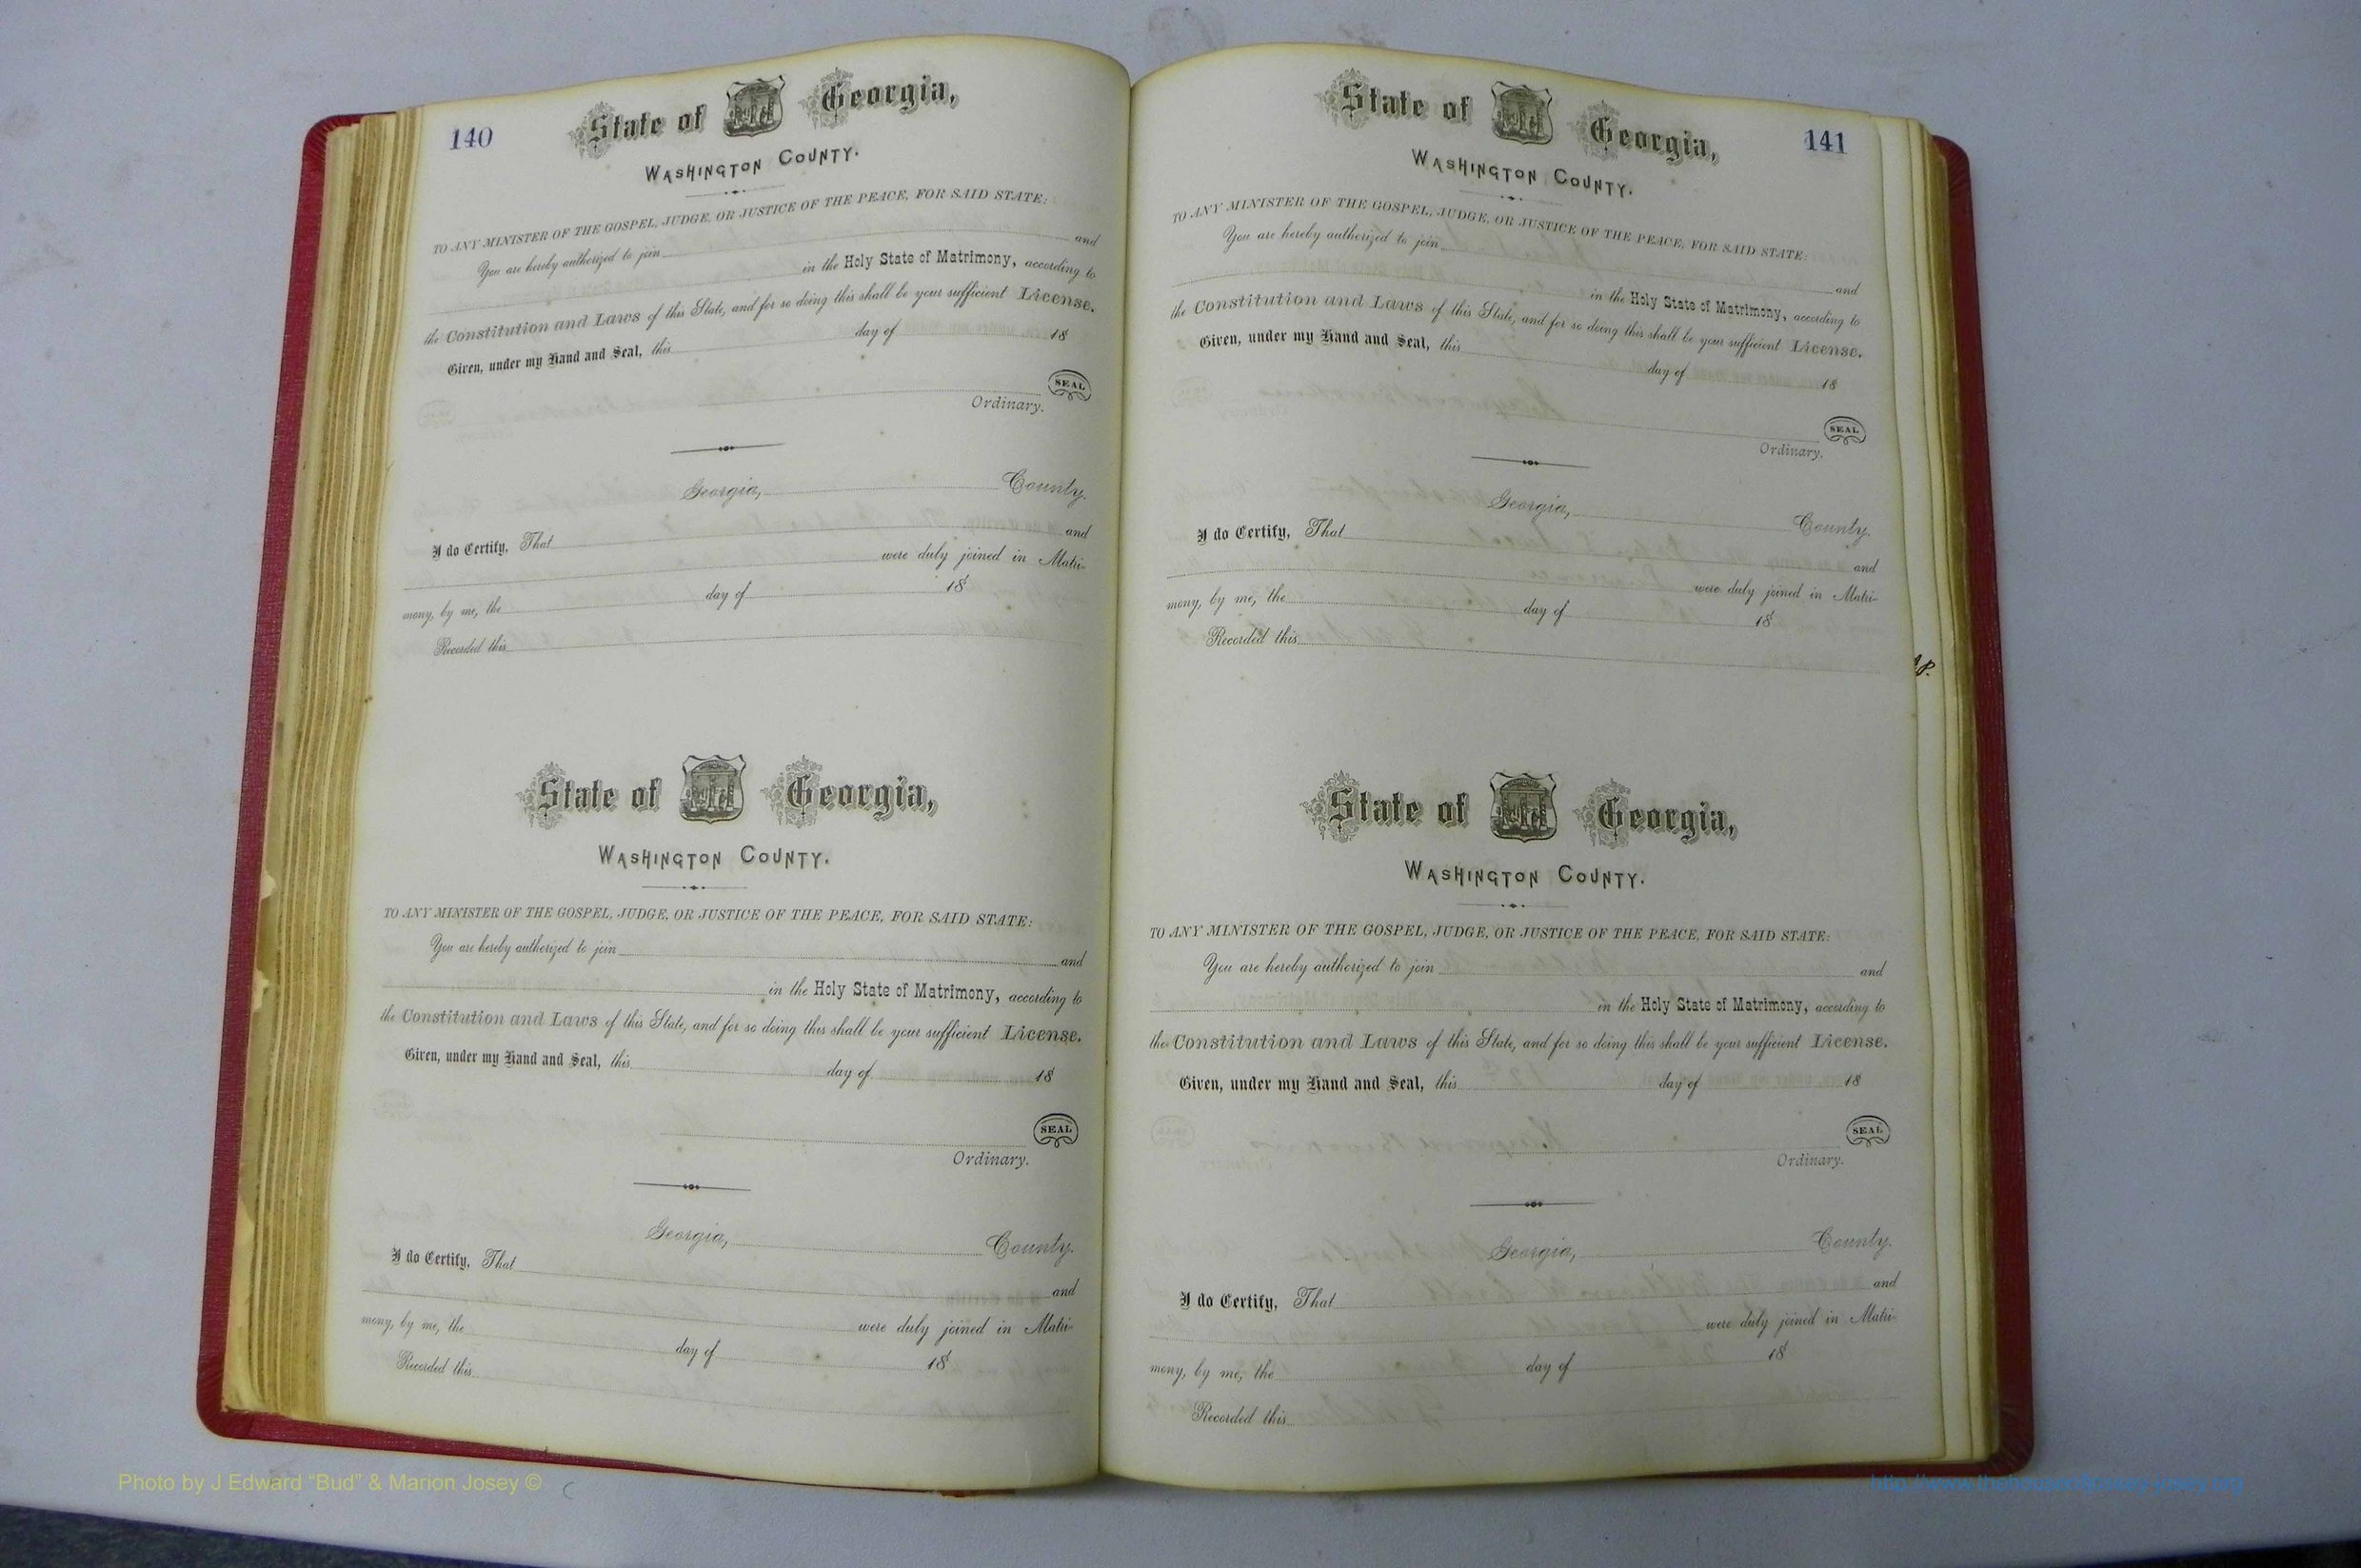 140
State of Georgia,
WASHINGTON COUNTY.
TO ANY MINISTER OF THE GOSPEL, JUDGE, OR JUSTICE OF THE PEACE, FOR SAID STATE:
You are hereby authorized to join and
in the Holy State of Matrimony, according to
the Constitution and Laws of this State, and for so doing this shall be your sufficient License.
Given, under my Hand and Seal, this day of 18
SEAL
Ordinary.
Georgia, County.
I do Certify, That and
were duly joined in Matri-
mony, by me, the day of 18
Recorded this
State of Georgia,
WASHINGTON COUNTY.
TO ANY MINISTER OF THE GOSPEL, JUDGE, OR JUSTICE OF THE PEACE, FOR SAID STATE:
You are hereby authorized to join and
in the Holy State of Matrimony, according to
the Constitution and Laws of this State, and for so doing this shall be your sufficient License.
Given, under my Hand and Seal, this day of 18
SEAL
Ordinary.
Georgia, County.
I do Certify, That and
were duly joined in Matri-
mony, by me, the day of 18
Recorded this
141
State of Georgia,
WASHINGTON COUNTY.
TO ANY MINISTER OF THE GOSPEL, JUDGE, OR JUSTICE OF THE PEACE, FOR SAID STATE:
You are hereby authorized to join and
in the Holy State of Matrimony, according to
the Constitution and Laws of this State, and for so doing this shall be your sufficient License.
Given, under my Hand and Seal, this day of 18
SEAL
Ordinary.
Georgia, County.
I do Certify, That and
were duly joined in Matri-
mony, by me, the day of 18
Recorded this
State of Georgia,
WASHINGTON COUNTY.
TO ANY MINISTER OF THE GOSPEL, JUDGE, OR JUSTICE OF THE PEACE, FOR SAID STATE:
You are hereby authorized to join and
in the Holy State of Matrimony, according to
the Constitution and Laws of this State, and for so doing this shall be your sufficient License.
Given, under my Hand and Seal, this day of 18
SEAL
Ordinary.
Georgia, County.
I do Certify, That and
were duly joined in Matri-
mony, by me, the day of 18
Recorded this
Photo by J Edward “Bud” & Marion Josey ©